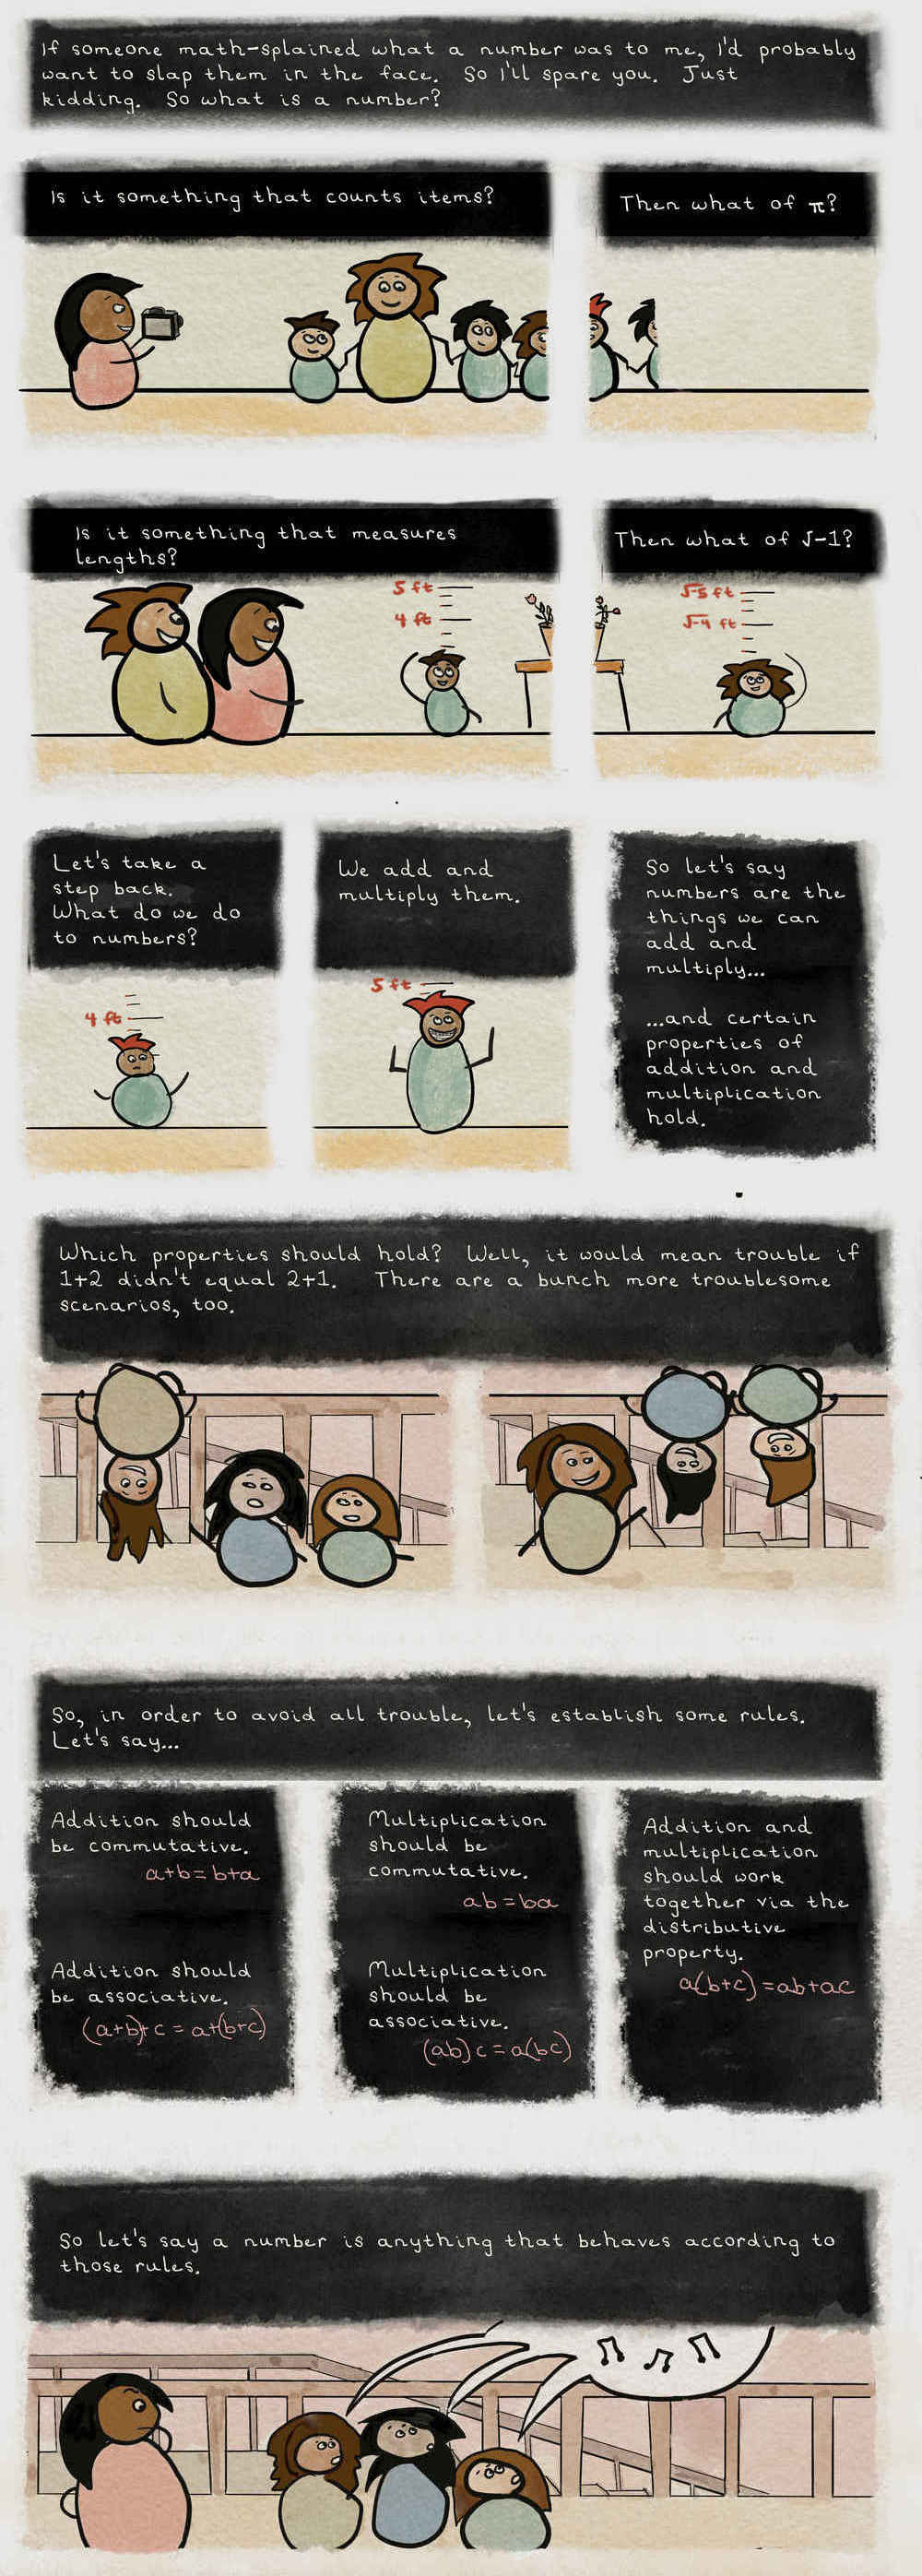 If someone math-splained what a number was to me, I'd probably
want to slap them in the face. So I'll spare you. Just
kidding. So what is a number?
Is it something that counts items?
Then what of π?
Is it something that measures
lengths?
5 ft
4 ft
Then what of √-1?
√-5 ft
√-4 ft
Let's take a
step back.
What do we do
to numbers?
4 ft
We add and
multiply them.
5 ft
So let's say
numbers are the
things we can
add and
multiply...
...and certain
properties of
addition and
multiplication
hold.
Which properties should hold? Well, it would mean trouble if
1+2 didn't equal 2+1. There are a bunch more troublesome
scenarios, too.
So, in order to avoid all trouble, let's establish some rules.
Let's say...
Addition should
be commutative.
a+b=b+a
Addition should
be associative.
(a+b)+c = a+(b+c)
Multiplication
should be
commutative.
ab=ba
Multiplication
should be
associative.
(ab)c=a(bc)
Addition and
multiplication
should work
together via the
distributive
property.
a(b+c)=ab+ac
So let's say a number is anything that behaves according to
those rules.